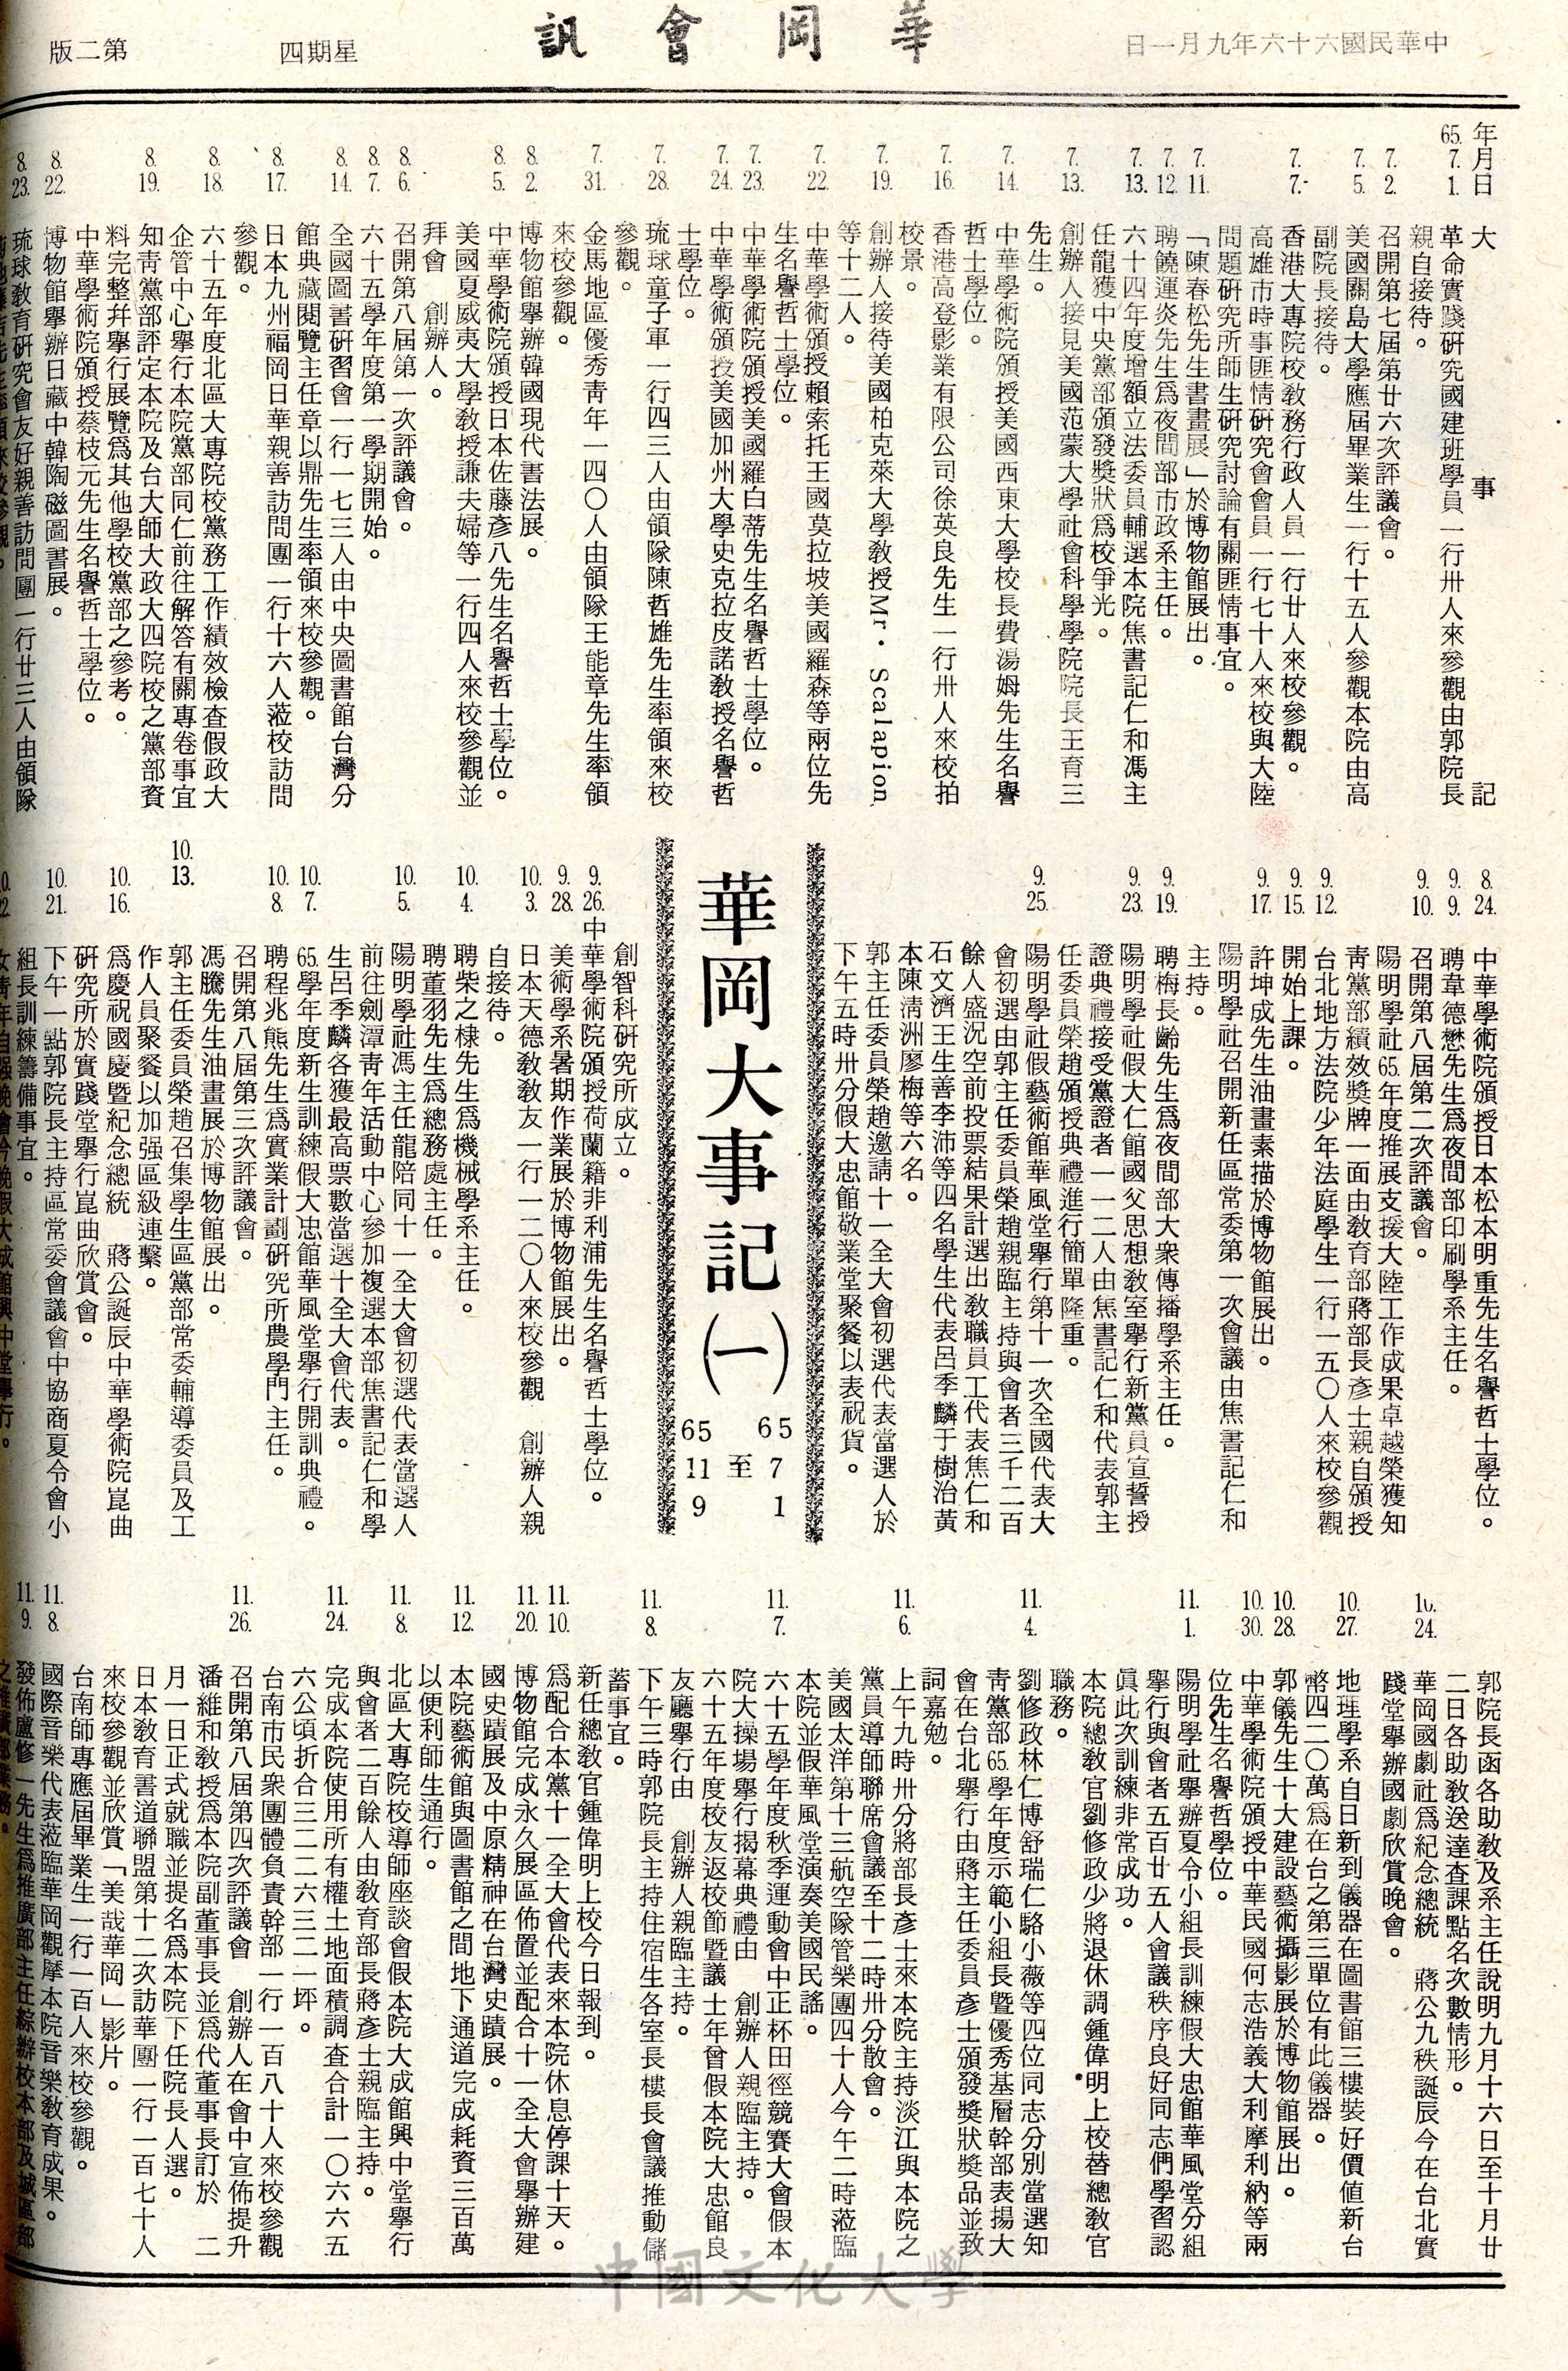 中華民國六十六年九月一日
華岡會訊
星期四
第二版
年月日 大事記
65. 7. 1. 革命實踐研究國建班學員一行卅人來參觀由郭院長
親自接待。
7. 2. 召開第七屆第廿六次評議會。
7. 5. 美國關島大學應屆畢業生一行十五人參觀本院由高
副院長接待。
7. 7. 香港大專院校教務行政人員一行廿人來校參觀。
高雄市時事匪情研究會會員一行七十人來校與大陸
問題研究所師生研究討論有關匪情事宜。
7. 11. 「陳春松先生書畫展」於博物館展出。
7. 12. 聘饒運炎先生爲夜間部市政系主任。
7. 13. 六十四年度增額立法委員輔選本院焦書記仁和馮主
任龍獲中央黨部頒發獎狀爲校爭光。
7. 13. 創辦人接見美國范蒙大學社會科學學院院長王育三
先生。
7. 14. 中華學術院頒授美國西東大學校長費湯姆先生名譽
哲士學位。
7. 16. 香港高登影業有限公司徐英良先生一行卅人來校拍
校景。
7. 19. 創辦人接待美國柏克萊大學教授Mr. Scalapion
等十二人。
7. 22. 中華學術頒授賴索托王國莫拉坡美國羅森等兩位先
生名譽哲士學位。
7. 23. 中華學術院頒授美國羅白蒂先生名譽哲士學位。
7. 24. 中華學術頒授美國加州大學史克拉皮諾教授名譽哲
士學位。
7. 28. 琉球童子軍一行四三人由領隊陳哲雄先生率領來校
參觀。
7. 31. 金馬地區優秀靑年一四〇人由領隊王能章先生率領
來校參觀。
8. 2. 博物館舉辦韓國現代書法展。
8. 5. 中華學術院頒授日本佐藤彥八先生名譽哲士學位。
美國夏威夷大學教授謙夫婦等一行四人來校參觀並
拜會 創辦人。
8. 6. 召開第八屆第一次評議會。
8. 7. 六十五學年度第一學期開始。
8. 14. 全國圖書研習會一行一七三人由中央圖書館台灣分
館典藏閱覽主任章以鼎先生率領來校參觀。
8. 17. 日本九州福岡日華親善訪問團一行十六人蒞校訪問
參觀。
8. 18. 六十五年度北區大專院校黨務工作績效檢查假政大
企管中心舉行本院黨部同仁前往解答有關專卷事宜
8. 19. 知靑黨部評定本院及台大師大政大四院校之黨部資
料完整幷舉行展覽爲其他學校黨部之參考。
中華學術院頒授蔡枝元先生名譽哲士學位。
8. 22. 博物館舉辦日藏中韓陶磁圖書展。
8. 23. 琉球教育研究會友好親善訪問團一行廿三人由領隊
8. 24. 中華學術院頒授日本松本明重先生名譽哲士學位。
9. 9. 聘韋德懋先生爲夜間部印刷學系主任。
9. 10. 召開第八屆第二次評議會。
陽明學社65.年度推展支援大陸工作成果卓越榮獲知
靑黨部績效獎牌一面由教育部蔣部長彥士親自頒授
9. 12. 台北地方法院少年法庭學生一行一五〇人來校參觀
9. 15. 開始上課。
9. 17. 許坤成先生油畫素描於博物館展出。
陽明學社召開新任區常委第一次會議由焦書記仁和
主持。
9. 19. 聘梅長齡先生爲夜間部大衆傳播學系主任。
9. 23. 陽明學社假大仁館國父思想教室舉行新黨員宣誓授
證典禮接受黨證者一一二人由焦書記仁和代表郭主
任委員榮趙頒授典禮進行簡單隆重。
9. 25. 陽明學社假藝術館華風堂舉行第十一次全國代表大
會初選由郭主任委員榮趙親臨主持與會者三千二百
餘人盛況空前投票結果計選出教職員工代表焦仁和
石文濟王生善李沛等四名學生代表呂季麟于樹治黃
本陳淸洲廖梅等六名。
郭主任委員榮趙邀請十一全大會初選代表當選人於
下午五時卅分假大忠館敬業堂聚餐以表祝賀。
華岡大事記(一)
65 7 1
至
65 11 9
創智科研究所成立。
9. 26. 中華學術院頒授荷蘭籍非利浦先生名譽哲士學位。
9. 28. 美術學系暑期作業展於博物館展出。
10. 3. 日本天德教教友一行一二〇人來校參觀 創辦人親
自接待。
10. 4. 聘柴之棣先生爲機械學系主任。
聘董羽先生爲總務處主任。
10. 5. 陽明學社馮主任龍陪同十一全大會初選代表當選人
前往劍潭靑年活動中心參加複選本部焦書記仁和學
生呂季麟各獲最高票數當選十全大會代表。
10. 7. 65.學年度新生訓練假大忠館華風堂舉行開訓典禮。
10. 8. 聘程兆熊先生爲實業計劃研究所農學門主任。
召開第八屆第三次評議會。
馮騰先生油畫展於博物館展出。
10. 13. 郭主任委員榮趙召集學生區黨部常委輔導委員及工
作人員聚餐以加强區級連繫。
10. 16. 爲慶祝國慶暨紀念總統 蔣公誕辰中華學術院崑曲
研究所於實踐堂舉行崑曲欣賞會。
10. 21. 下午一點郭院長主持區常委會議會中協商夏令會小
組長訓練籌備事宜。
10. 22. 女靑年自强晚會今晚假大成館興中堂舉行。
郭院長函各助教及系主任說明九月十六日至十月廿
二日各助教送達查課點名次數情形。
10. 24. 華岡國劇社爲紀念總統 蔣公九秩誕辰今在台北實
踐堂舉辦國劇欣賞晚會。
10. 27. 地理學系自日新到儀器在圖書館三樓裝好價値新台
幣四二〇萬爲在台之第三單位有此儀器。
10. 28. 郭儀先生十大建設藝術攝影展於博物館展出。
10. 30. 中華學術院頒授中華民國何志浩義大利摩利納等兩
位先生名譽哲學位。
11. 1. 陽明學社舉辦夏令小組長訓練假大忠館華風堂分組
舉行與會者五百廿五人會議秩序良好同志們學習認
眞此次訓練非常成功。
本院總教官劉修政少將退休調鍾偉明上校替總教官
職務。
11. 4. 劉修政林仁博舒瑞仁駱小薇等四位同志分別當選知
靑黨部65.學年度示範小組長暨優秀基層幹部表揚大
會在台北舉行由蔣主任委員彥士頒發獎狀獎品並致
詞嘉勉。
11. 6. 上午九時卅分將部長彥士來本院主持淡江與本院之
黨員導師聯席會議至十二時卅分散會。
美國太洋第十三航空隊管樂團四十人今午二時蒞臨
本院並假華風堂演奏美國民謠。
11. 7. 六十五學年度秋季運動會中正杯田徑競賽大會假本
院大操場舉行揭幕典禮由 創辦人親臨主持。
六十五年度校友返校節暨議士年曾假本院大忠館良
友廳舉行由 創辦人親臨主持。
11. 8. 下午三時郭院長主持住宿生各室長樓長會議推動儲
蓄事宜。
新任總教官鍾偉明上校今日報到。
11. 10. 爲配合本黨十一全大會代表來本院休息停課十天。
11. 20. 博物館完成永久展區佈置並配合十一全大會舉辦建
國史蹟展及中原精神在台灣史蹟展。
11. 12. 本院藝術館與圖書館之間地下通道完成耗資三百萬
以便利師生通行。
11. 8. 北區大專院校導師座談會假本院大成館興中堂舉行
與會者二百餘人由教育部長蔣彥士親臨主持。
11. 24. 完成本院使用所有權土地面積調查合計一〇六六五
六公頃折合三二二六三二一坪。
台南市民衆團體負責幹部一行一百八十人來校參觀
11. 26. 召開第八屆第四次評議會 創辦人在會中宣佈提升
潘維和教授爲本院副董事長並爲代董事長訂於 二
月一日正式就職並提名爲本院下任院長人選。
日本教育書道聯盟第十二次訪華團一行一百七十人
來校參觀並欣賞「美哉華岡」影片。
台南師專應屆畢業生一行一百人來校參觀。
11. 8. 國際音樂代表蒞臨華岡觀摩本院音樂教育成果。
11. 9. 發佈盧修一先生爲推廣部主任綜辦校本部及城區部
之推廣部業務。
中國文化大學